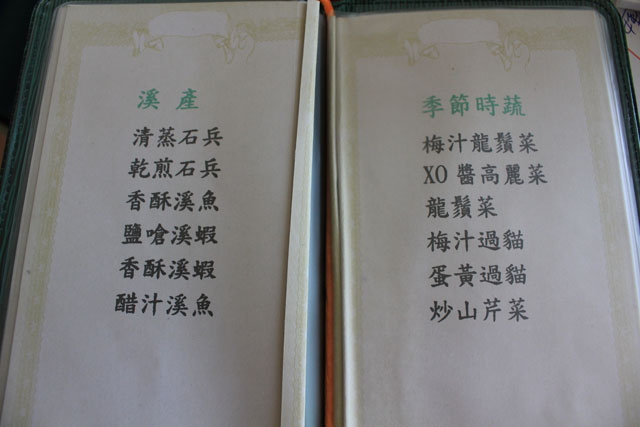 溪產
清蒸石兵
乾煎石兵
香酥溪魚
鹽嗆溪蝦
香酥溪蝦
醋汁溪魚
季節時蔬
梅汁龍鬚菜
XO醬高麗菜
龍鬚菜
梅汁過貓
蛋黃過貓
炒山芹菜